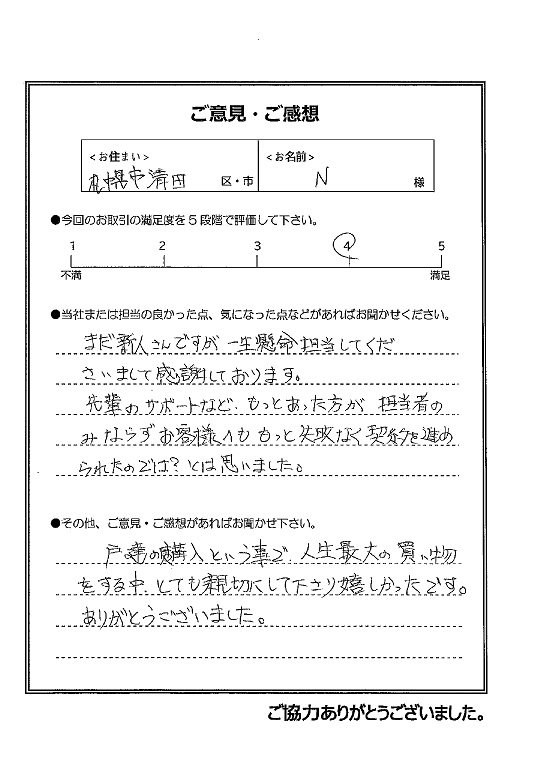 ご意見・ご感想
<お住まい>
<お名前>
札幌市清田 区・市
N 様
●今回のお取引の満足度を5段階で評価して下さい。
1 2 3 4 5
不満 満足
●当社または担当の良かった点、気になった点などがあればお聞かせください。
まだ新人さんですが一生懸命担当してくだ
さいまして感謝しております。
先輩のサポートなど、もっとあった方が 担当者の
みならずお客様へももっと失敗なく契約を進め
られたのでは?とは思いました。
●その他、ご意見・ご感想があればお聞かせ下さい。
戸建の購入という事で、人生最大の買い物
をする中、とても親切にして下さり嬉しかったです。
ありがとうございました。
ご協力ありがとうございました。